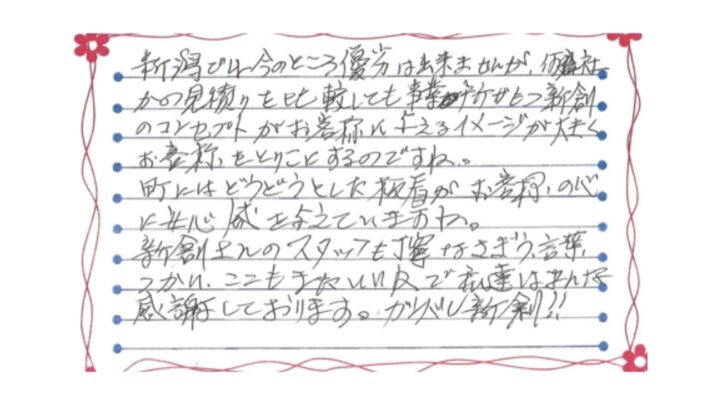 新潟では今のところ優劣は出来ませんが、何社
かの見積りを比較しても事業所がもつ新創
のコンセプトがお客様に与えるイメージが大きく
お客様をとりこにするのですね。
町にはどうどうとした板看がお客様の心
に安心感を与えていますね。
新創さんのスタッフも丁寧なさぎょう、言葉
つかい、ここもまたいい反で私達はみんな
感謝しております。ガンバレ新創!!